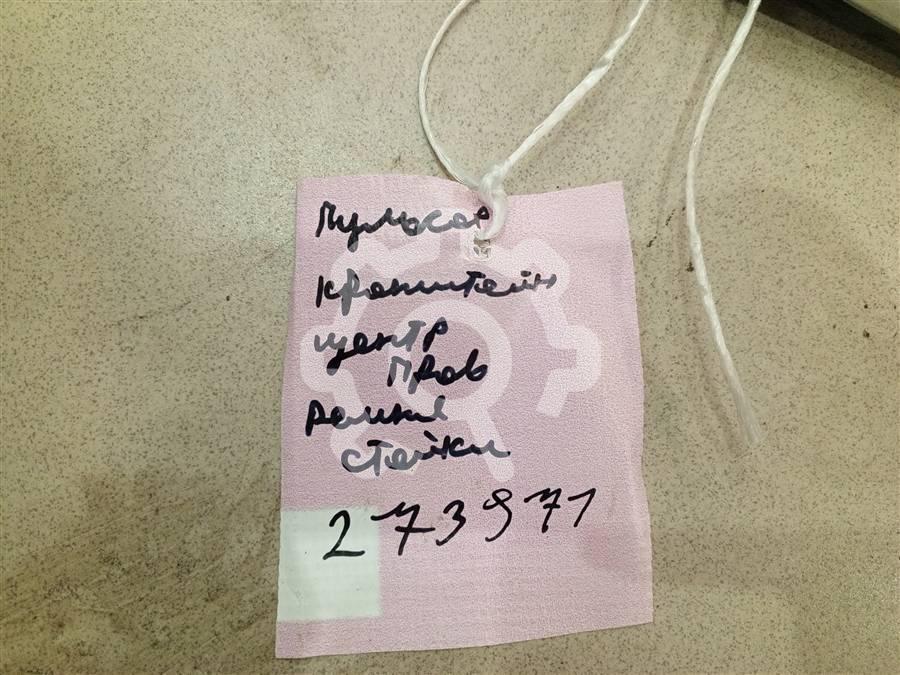 Пульсар
кронштейн
центр
прав
рамки
стойки
273971